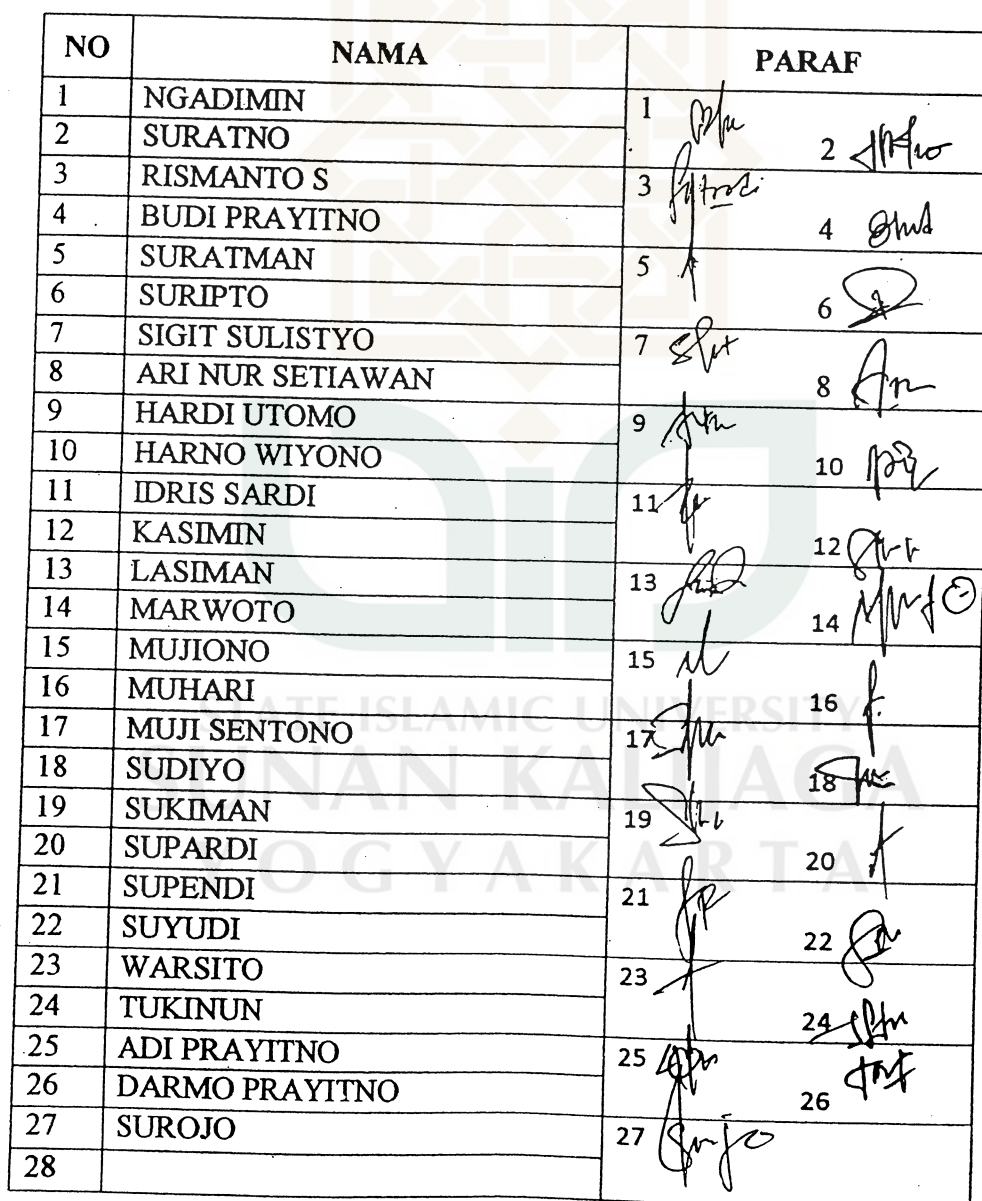 NO NAMA PARAF
1 NGADIMIN 1
2 SURATNO 2
3 RISMANTO S 3
4 BUDI PRAYITNO 4
5 SURATMAN 5
6 SURIPTO 6
7 SIGIT SULISTYO 7
8 ARI NUR SETIAWAN 8
9 HARDI UTOMO 9
10 HARNO WIYONO 10
11 IDRIS SARDI 11
12 KASIMIN 12
13 LASIMAN 13
14 MARWOTO 14
15 MUJIONO 15
16 MUHARI 16
17 MUJI SENTONO 17
18 SUDIYO 18
19 SUKIMAN 19
20 SUPARDI 20
21 SUPENDI 21
22 SUYUDI 22
23 WARSITO 23
24 TUKINUN 24
25 ADI PRAYITNO 25
26 DARMO PRAYITNO 26
27 SUROJO 27
28
STATE ISLAMIC UNIVERSITY
SUNAN KALIJAGA
YOGYAKARTA